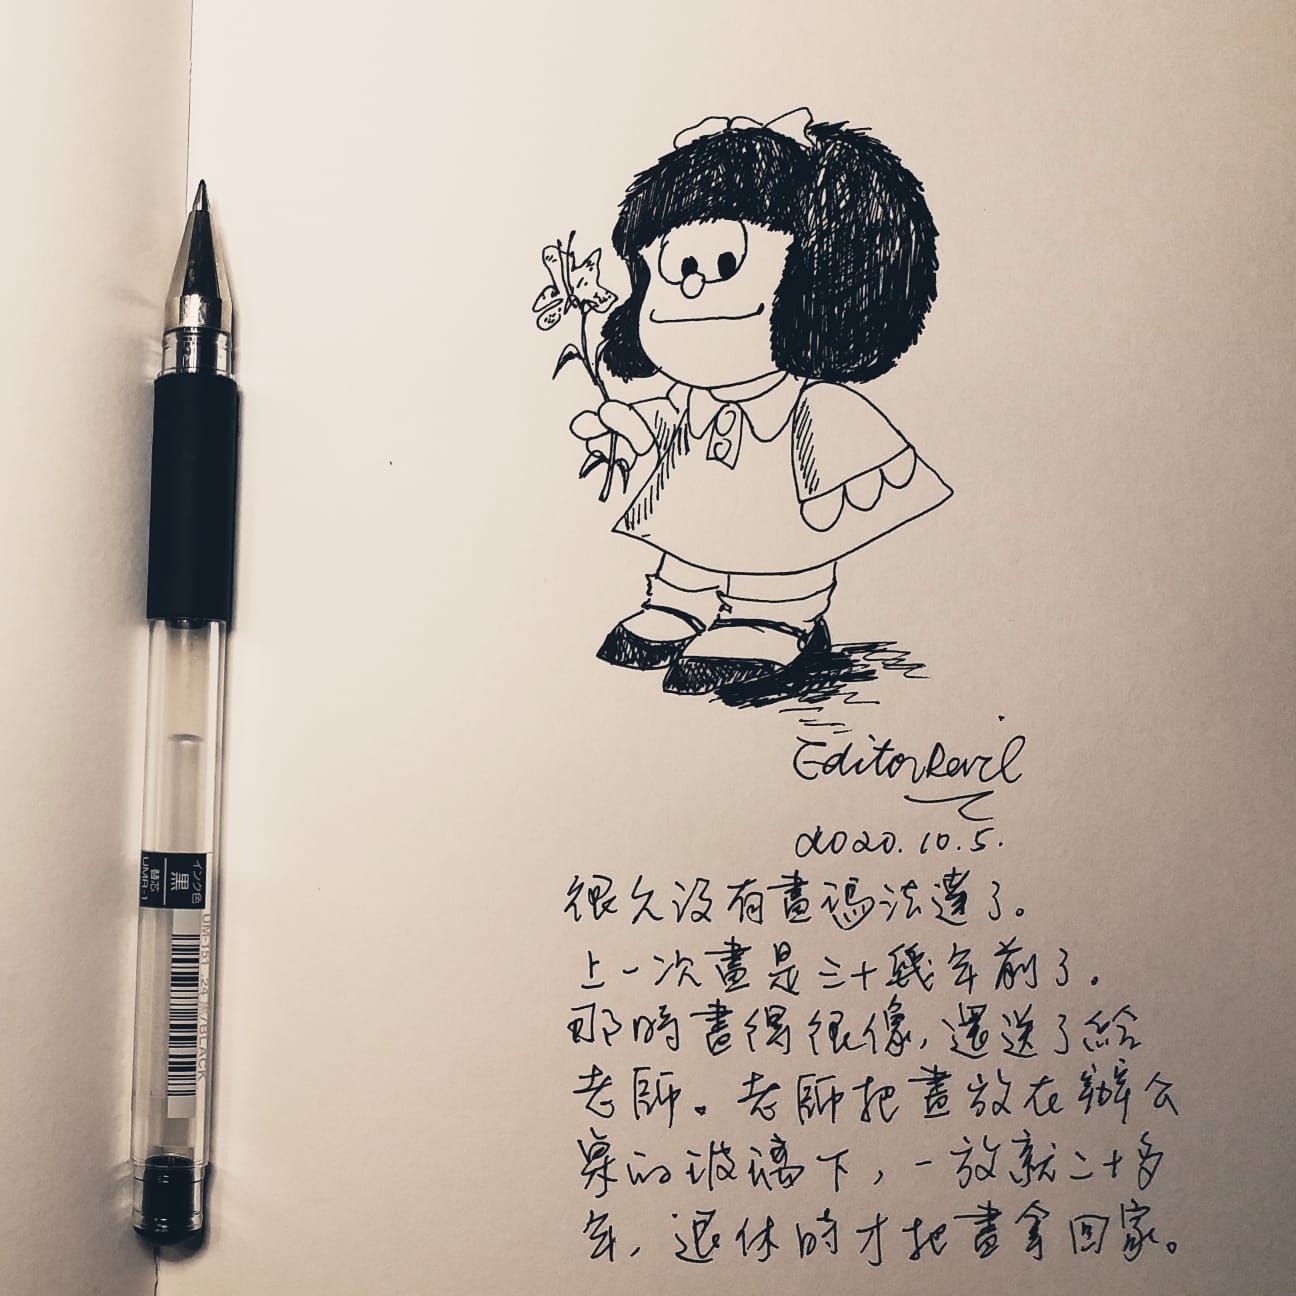 EditorRevil
2020.10.5.
很久沒有畫瑪法達了。
上一次畫是三十幾年前了。
那時畫得很像，還送了給
老師。老師把畫放在辦公
桌的玻璃下，一放就二十多
年，退休時才把畫拿回家。
インク色
黒
替芯
UMR-1
UM-151
BLACK